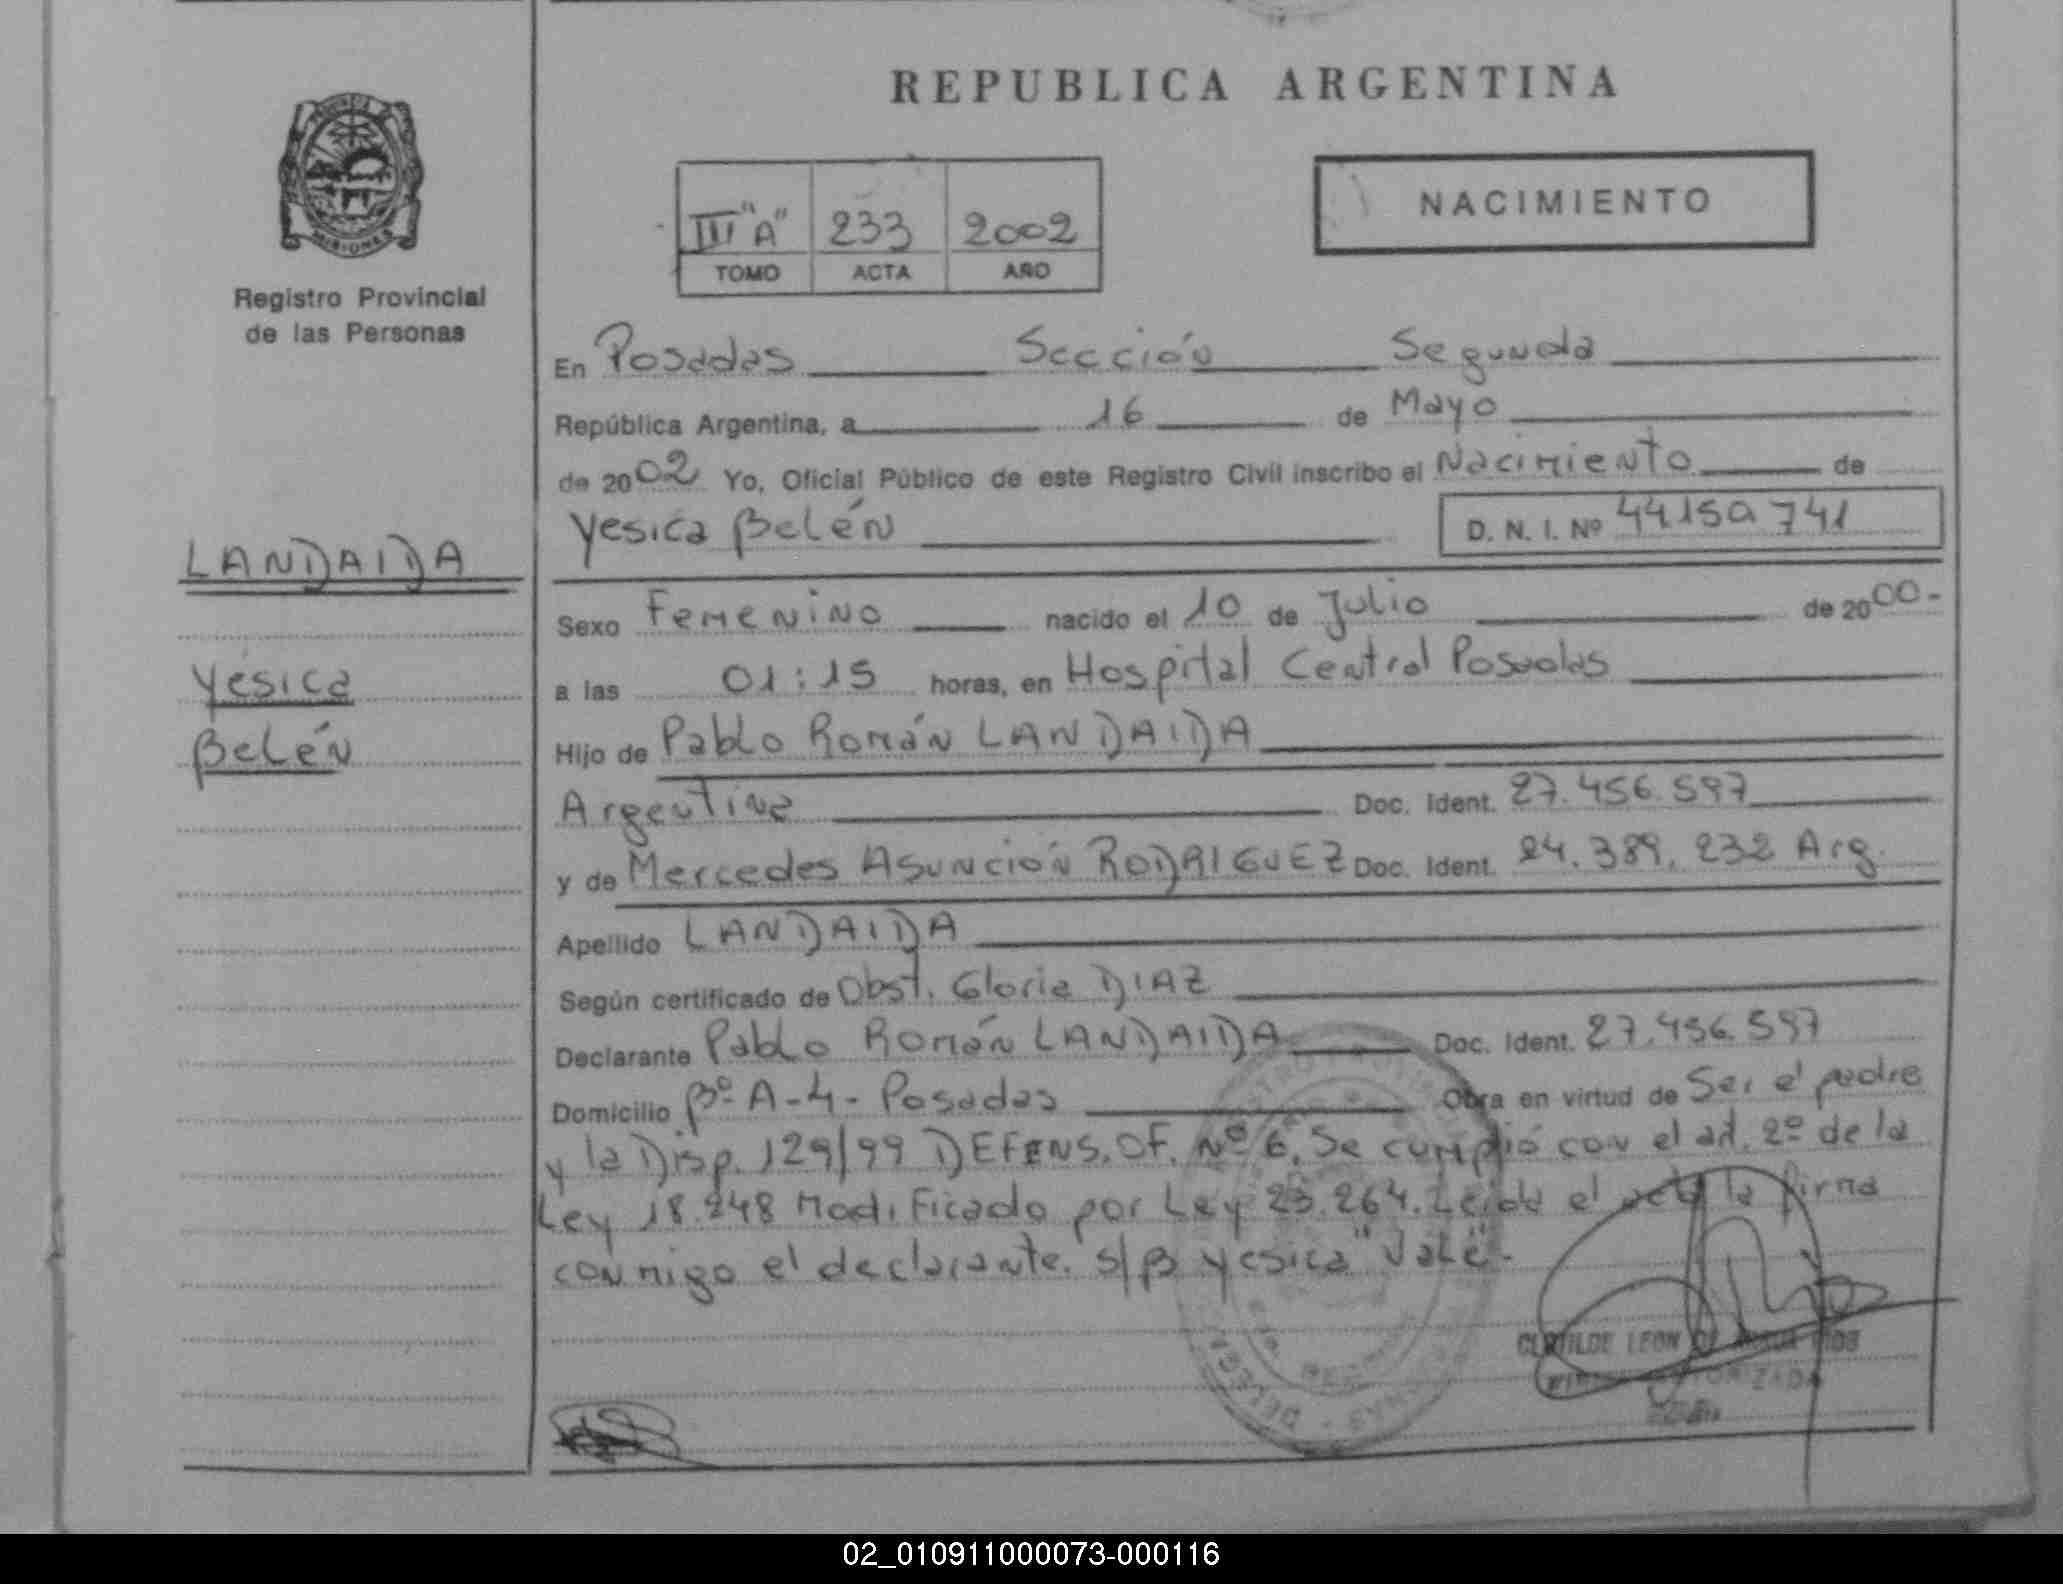 REPUBLICA ARGENTINA
MISIONES
Registro Provincial
de las Personas
III "A" 233 2002
TOMO ACTA AÑO
NACIMIENTO
En Posadas Sección Segunda
República Argentina, a 16 de Mayo
de 2002 Yo, Oficial Público de este Registro Civil inscribo el Nacimiento de
Yesica Belén D. N. I. Nº 44150741
LANDAIDA
Yésica
Belén
Sexo Femenino nacido el 10 de Julio de 2000-
a las 01:15 horas, en Hospital Central Posadas
Hijo de Pablo Román LANDAIDA
Argentina Doc. Ident. 27.456.597
y de Mercedes Asunción RODRIGUEZ Doc. Ident. 24.389.232 Arg.
Apellido LANDAIDA
Según certificado de Obst. Gloria DIAZ
Declarante Pablo Román LANDAIDA Doc. Ident. 27.456.597
Domicilio Bº A-4- Posadas Obra en virtud de Ser el padre
y la Disp. 129/99 DEFENS. OF. Nº 6. Se cumplió con el art. 2º de la
Ley 18.248 Modificado por Ley 23.264. Leída el acta la firma
conmigo el declarante. s/B Yesica "Vale"-
CLOTILDE LEON DE
FIRMA AUTORIZADA
02_010911000073-000116